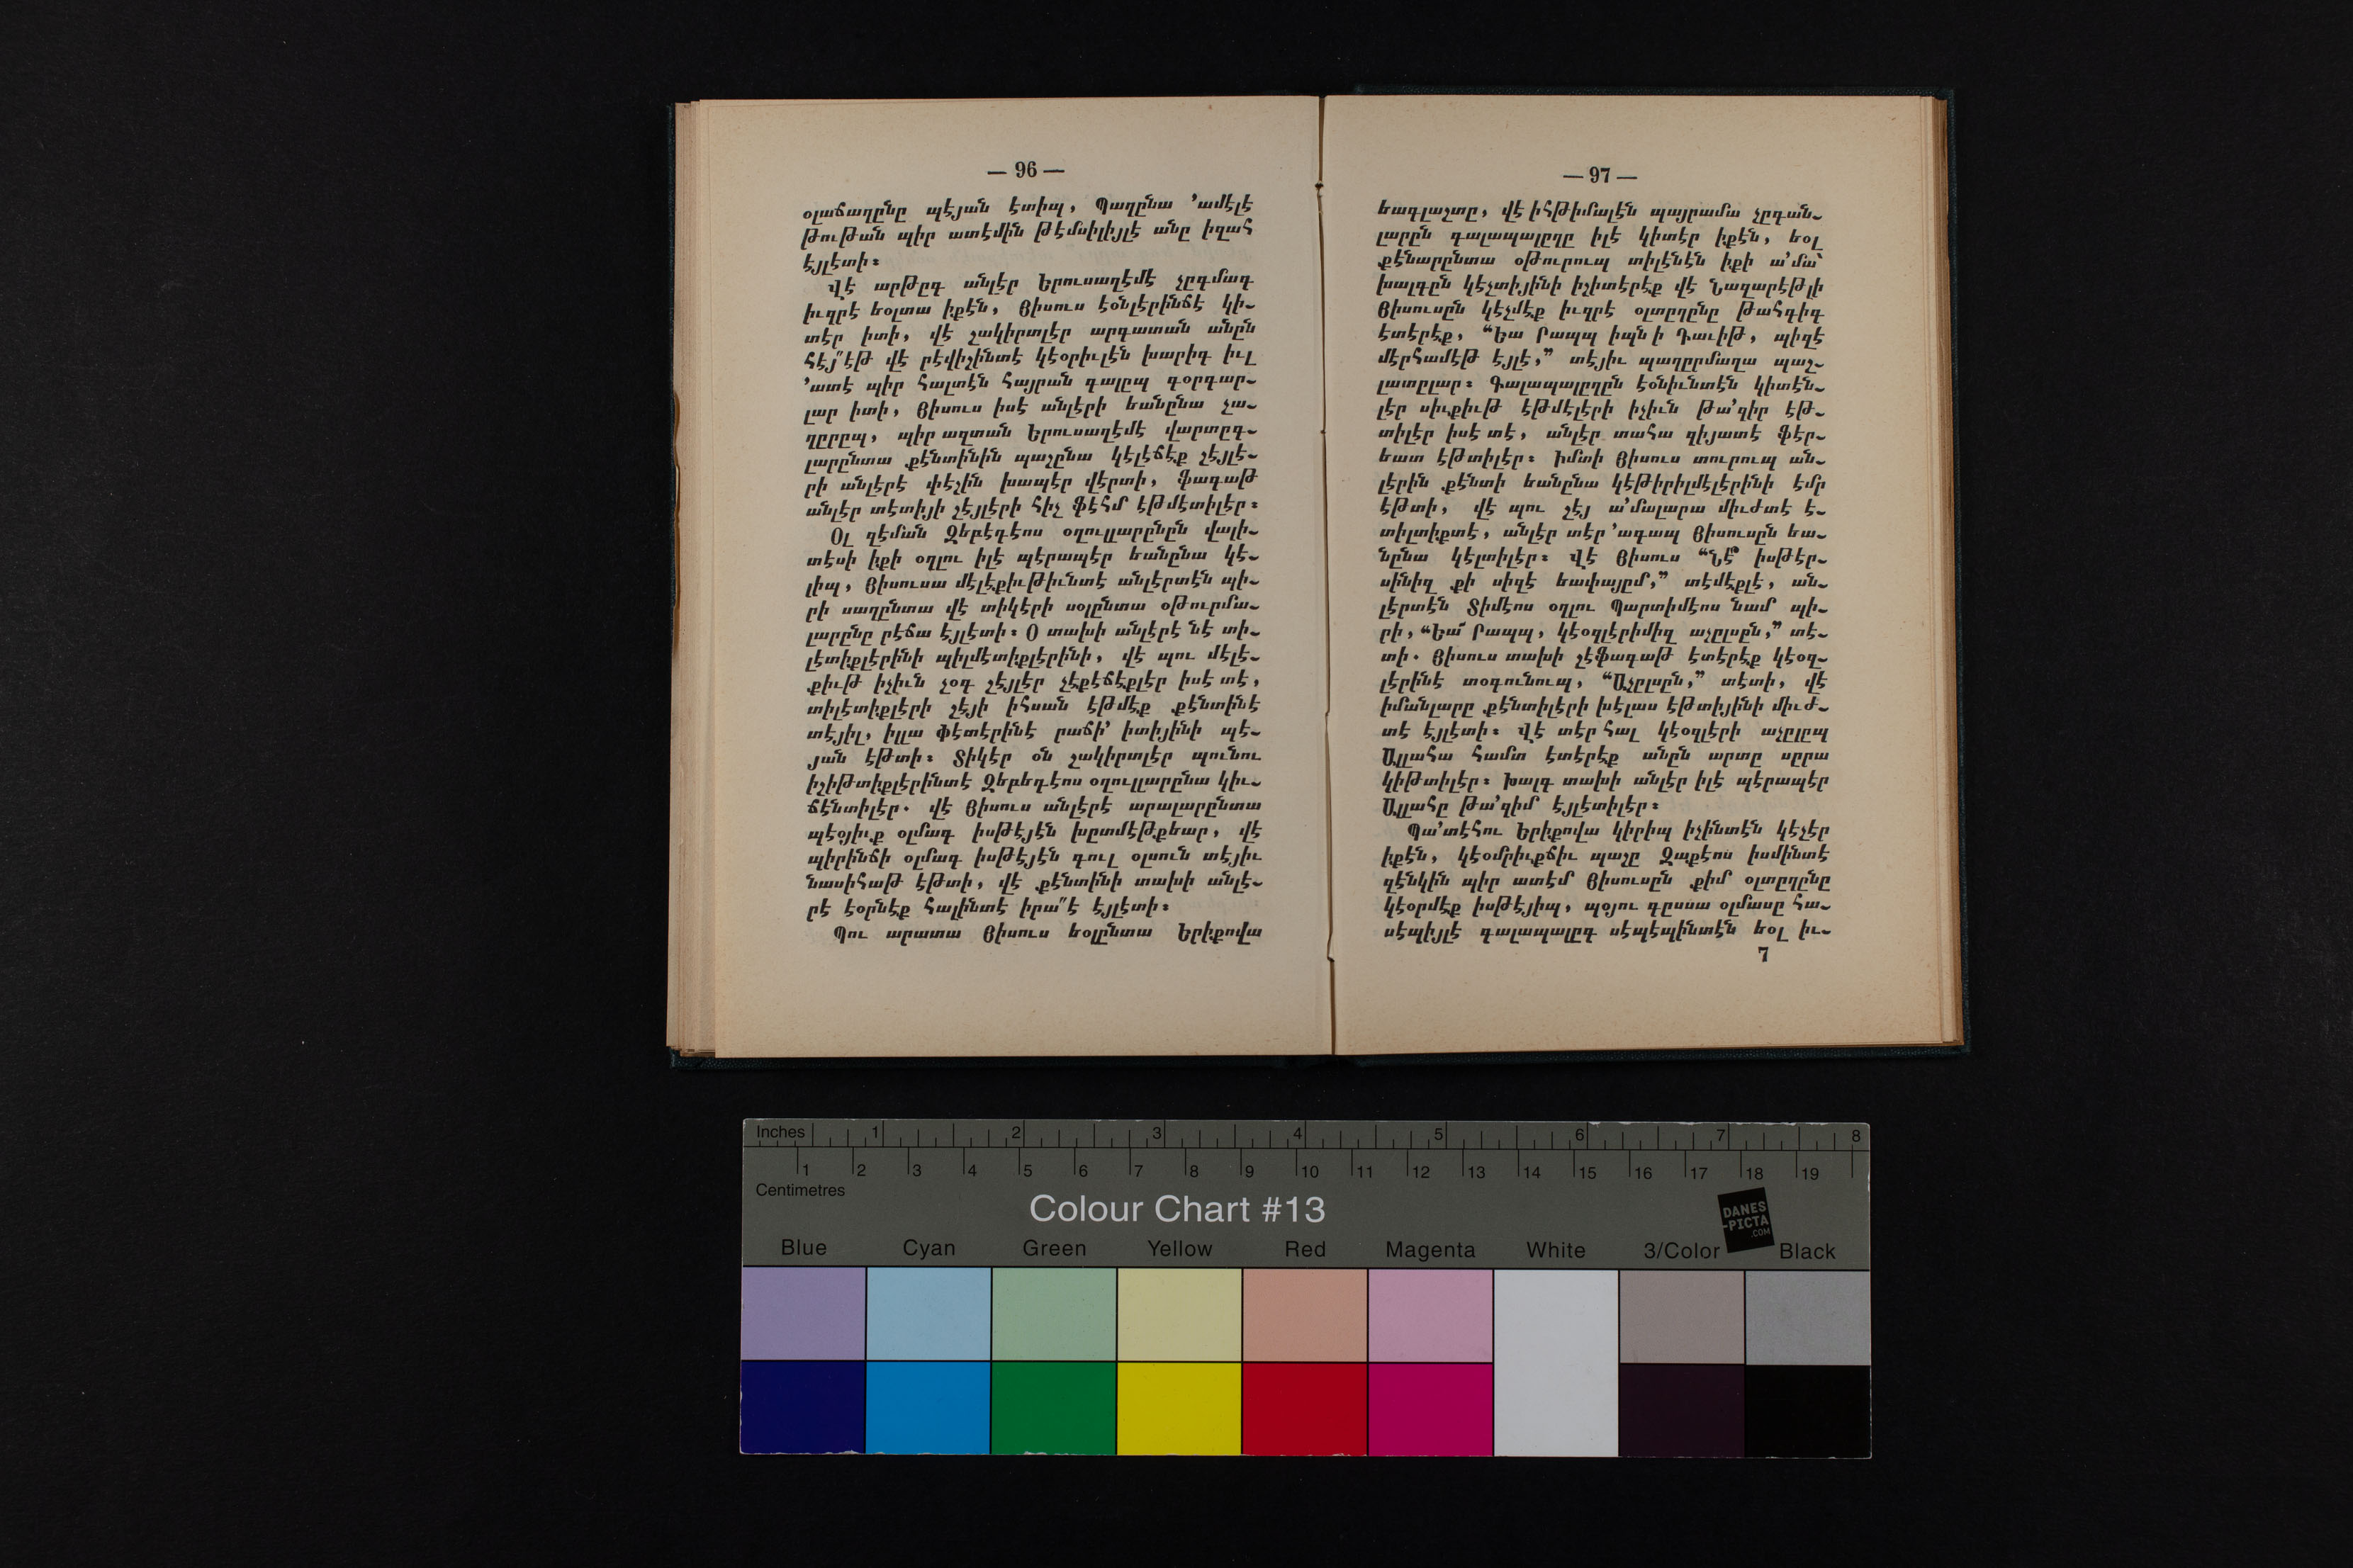 — 96 —
օլաճաղընը պէյան էտիպ, Պաղընա ՚ամէլէ
թութան պիր ատէմին թէմսիլիյլէ անը իզահ
էյլէտի։
Վէ արթըգ անլէր Երուսաղէմէ չըգմագ
իւզրէ եօլտա իքէն, Յիսուս էօնլէրինճէ կի֊
տէր իտի, վէ շակիրտլէր արգատան անըն
հէյ՛՛էթ վէ րէվիշինտէ կէօրիւլէն խարիգ իւլ
՚ատէ պիր հալտէն հայրան գալըպ գօրգար֊
լար իտի, Յիսուս իսէ անլէրի եանընա չա֊
ղըրըպ, պիր ազտան Երուսաղէմէ վարտըգ֊
լարընտա քէնտինին պաշընա կէլէճէք շէյլէ֊
րի անլէրէ փէշին խապէր վէրտի, ֆագաթ
անլէր տէտիյի շէյլէրի հիչ ֆէհմ էթմէտիլէր։
Օլ զէման Զեբէդէոս օղուլլարընըն վալի֊
տէսի իքի օղլու իլէ պէրապէր եանընա կէ֊
լիպ, Յիսուսա մէլէքիւթիւնտէ անլէրտէն պի֊
րի սաղընտա վէ տիկէրի սօլընտա օթուրմա֊
լարընը րէճա էյլէտի։ Օ տախի անլէրէ նէ տի֊
լէտիքլէրինի պիլմէտիքլէրինի, վէ պու մէլէ֊
քիւթ իչիւն չօգ շէյլէր չէքէճէքլէր իսէ տէ,
տիլէտիքլէրի շէյի իհսան էթմէք քէնտինէ
տէյիլ, իլլա Փէտէրինէ րաճի՚ իտիյինի պէ֊
յան էթտի։ Տիկէր օն շակիրտլէր պունու
իշիթտիքլէրինտէ Զեբեդէոս օղուլլարընա կիւ֊
ճէնտիլէր. վէ Յիսուս անլէրէ արալարընտա
պէօյիւք օլմագ իսթէյէն խըտմէթքեար, վէ
պիրինճի օլմագ իսթէյէն գուլ օլսուն տէյիւ
նասիհաթ էթտի, վէ քէնտինի տախի անլէ֊
րէ էօրնէք հալինտէ իրա՛՛է էյլէտի։
Պու արատա Յիսուս եօլընտա Երիքովա
— 97 —
եագլաշտը, վէ իհթիմալէն պայրամա չըգան֊
լարըն գալապալըղը իլէ կիտէր իքէն, եօլ
քէնարընտա օթուրուպ տիլէնէն իքի ա՚մա՝
խալգըն կէչտիյինի իշիտէրէք վէ Նազարէթլի
Յիսուսըն կէչմէք իւզրէ օլտըղընը թահգիգ
էտէրէք, “Եա Րապպ իպն ի Դաւիթ, պիզէ
մէրհամէթ էյլէ,” տէյիւ պաղըրմաղա պաշ֊
լատըլար։ Գալապալըղըն էօնիւնտէն կիտէն֊
լէր սիւքիւթ էթմէլէրի իչիւն թա՚զիր էթ֊
տիլէր իսէ տէ, անլէր տահա զիյատէ ֆէր֊
եատ էթտիլէր։ Իմտի Յիսուս տուրուպ ան֊
լէրին քէնտի եանընա կէթիրիլմէլէրինի էմր
էթտի, վէ պու շէյ ա՚մալարա միւժտէ է֊
տիլտիքտէ, անլէր տէր ՚ագապ Յիսուսըն եա֊
նընա կէլտիլէր։ Վէ Յիսուս “Նէ՞ իսթէր֊
սինիզ քի սիզէ եափայըմ,” տէմէքլէ, ան֊
լէրտէն Տիմէոս օղլու Պարտիմէոս նամ պի֊
րի, “Եա՜ Րապպ, կէօզլէրիմիզ աչըլսըն,” տէ֊
տի. Յիսուս տախի շէֆագաթ էտէրէք կէօզ֊
լէրինէ տօգունուպ, “Աչըլսըն,” տէտի, վէ
իմանլարը քէնտիլէրի խէլաս էթտիյինի միւժ֊
տէ էյլէտի։ Վէ տէր հալ կէօզլէրի աչըլըպ
Ալլահա համտ էտէրէք անըն արտը սըրա
կիթտիլէր։ Խալգ տախի անլէր իլէ պէրապէր
Ալլահը թա՚զիմ էյլէտիլէր։
Պա՚տէհու Երիքովա կիրիպ իչինտէն կէչէր
իքէն, կէօմրիւքճիւ պաշը Զաքէոս իսմինտէ
զէնկին պիր ատէմ Յիսուսըն քիմ օլտըղընը
կէօրմէք իսթէյիպ, պօյու գըսսա օլմասը հա֊
սէպիյլէ գալապալըգ սէպէպինտէն եօլ իւ֊
7
Inches 1 2 3 4 5 6 7 8
1 2 3 4 5 6 7 8 9 10 11 12 13 14 15 16 17 18 19
Centimetres
Colour Chart #13
DANES
-PICTA
.COM
Blue Cyan Green Yellow Red Magenta White 3/Color Black